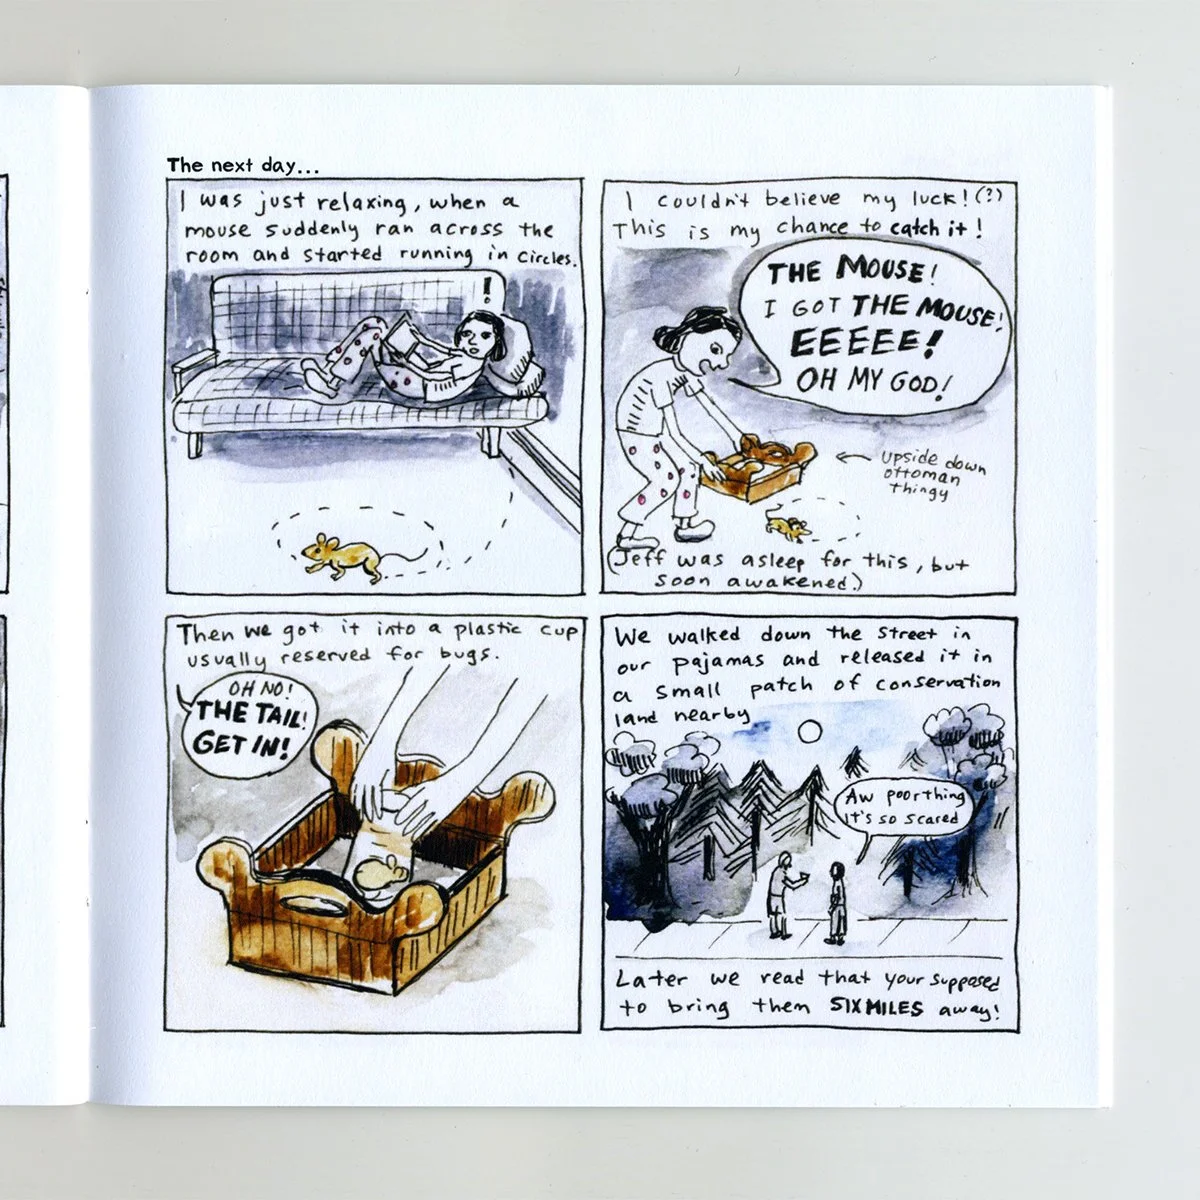 The next day...
I was just relaxing, when a
mouse suddenly ran across the
room and started running in circles.
!
I couldn't believe my luck! (?)
This is my chance to catch it!
THE MOUSE!
I GOT THE MOUSE!
EEEEE!
OH MY GOD!
upside down
ottoman
thingy
(Jeff was asleep for this, but
soon awakened.)
Then we got it into a plastic cup
usually reserved for bugs.
OH NO!
THE TAIL!
GET IN!
We walked down the street in
our pajamas and released it in
a small patch of conservation
land nearby
Aw poor thing
It's so scared
Later we read that your supposed
to bring them SIX MILES away!